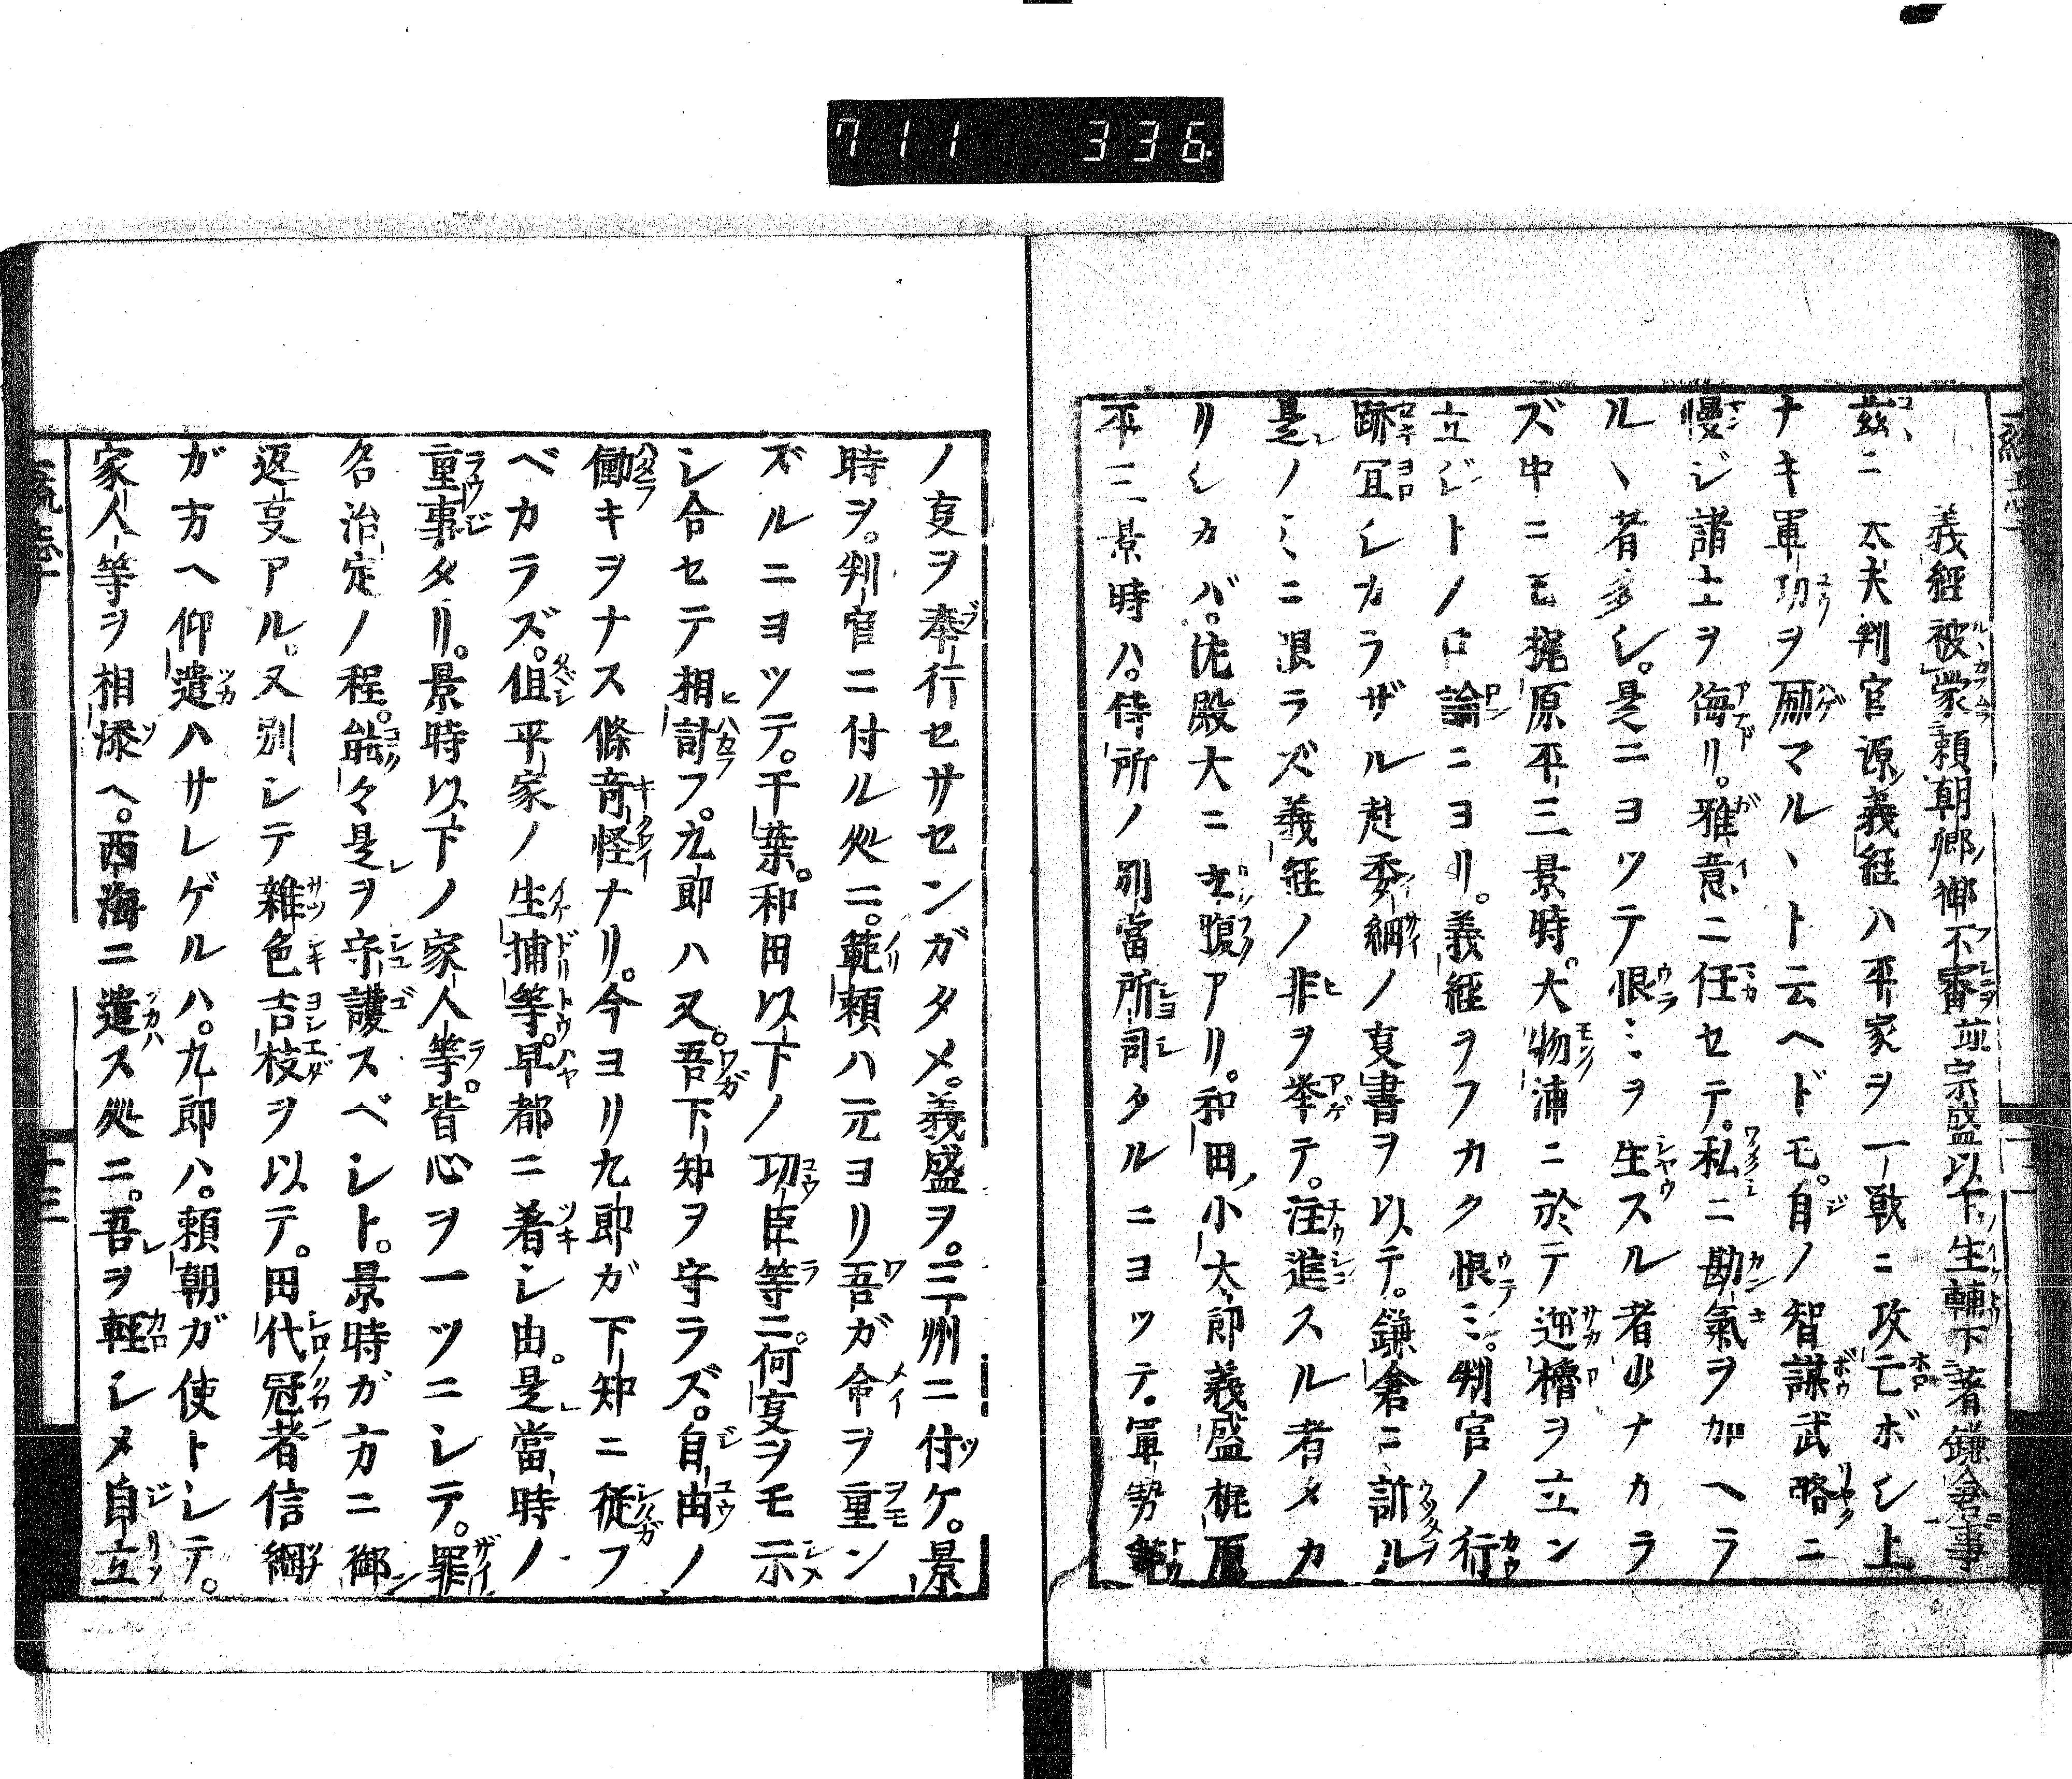 711 336
義經被蒙頼朝卿御不審並宗盛以下生輔下著鎌倉事
茲ニ太夫判官源義経ハ平家ヲ一戦ニ攻亡ボシ上
ナキ軍功ヲ励マルヽト云ヘドモ。自ノ智謀武略ニ
慢ジ諸士ヲ侮リ。雅意ニ任セテ。私ニ勘氣ヲ加ヘラ
ルヽ者多シ。是ニヨツテ恨ミヲ生スル者少ナカラ
ズ中ニモ梶原平三景時。大物浦ニ於テ逆櫓ヲ立ン
立ジトノ口論ニヨリ。義経ヲフカク恨ミ。判官ノ行
跡宜シカラザル赴委細ノ㕝書ヲ以テ。鎌倉ニ訴ル
是ノミニ限ラズ義経ノ非ヲ挙テ。注進スル者メカ
リシカバ。佐殿大ニ立腹アリ。和田小太郎義盛梶原
平三景時ハ。侍所ノ別當所司タルニヨツテ。軍勢等
ノ㕝ヲ奉行セサセンガタメ。義盛ヲ。三州ニ付ケ。景
時ヲ。判官ニ付ル処ニ。範頼ハ元ヨリ吾ガ命ヲ重ン
ズルニヨツテ。千葉。和田以下ノ功臣等ニ。何㕝ヲモ示
シ合セテ相計フ。九郎ハ又。吾下知ヲ守ラズ。自由ノ
働キヲナス條奇怪ナリ。今ヨリ九郎ガ下知ニ従フ
ベカラズ。但平家ノ生捕等。早都ニ着シ由。是當時ノ
重事タリ。景時以下ノ家人等。皆心ヲ一ツニシテ。罪
名治定ノ程。能々是ヲ守護スベシト。景時ガ方ニ御
返㕝アル。又別シテ雜色吉枝ヲ以テ。田代冠者信綱
ガ方ヘ仰遣ハサレゲルハ。九郎ハ。頼朝ガ使トシテ。
家人等ヲ相添ヘ。西海ニ遣ス処ニ。吾ヲ軽シメ自立
十三